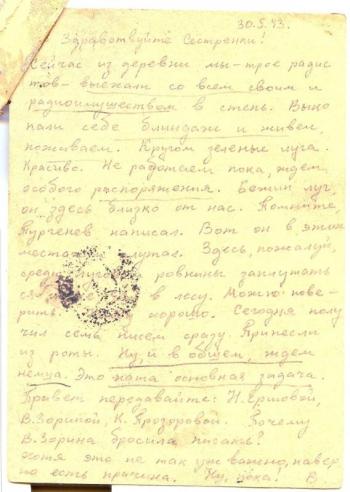 30.5.43.
Здравствуйте Сестренки!
Сейчас из деревни мы-трое радис
тов-выехали со всем своим и
радиоимуществом в степь. Выко
пали себе блиндаж и живем,
поживаем. Кругом зеленые луга.
Красиво. Не работаем пока, ждем
особого распоряжения. Бежин луг,
он здесь близко от нас. Помните,
Тургенев написал. Вот он в этих
местах плутал. Здесь, пожалуй,
среди ровнины заплутать
в лесу. Можно пове-
рить. хорошо. Сегодня полу
чил семь писем сразу. Принесли
из роты. Ну, и в общем, ждем
немца. Это наша основная задача.
Привет передавайте: Н.Ершовой,
В.Зориной, К. Прозоровой. Почему
В.Зорина бросила писать?
Хотя это не так уж важно, навер
но есть причина. Ну, пока. В